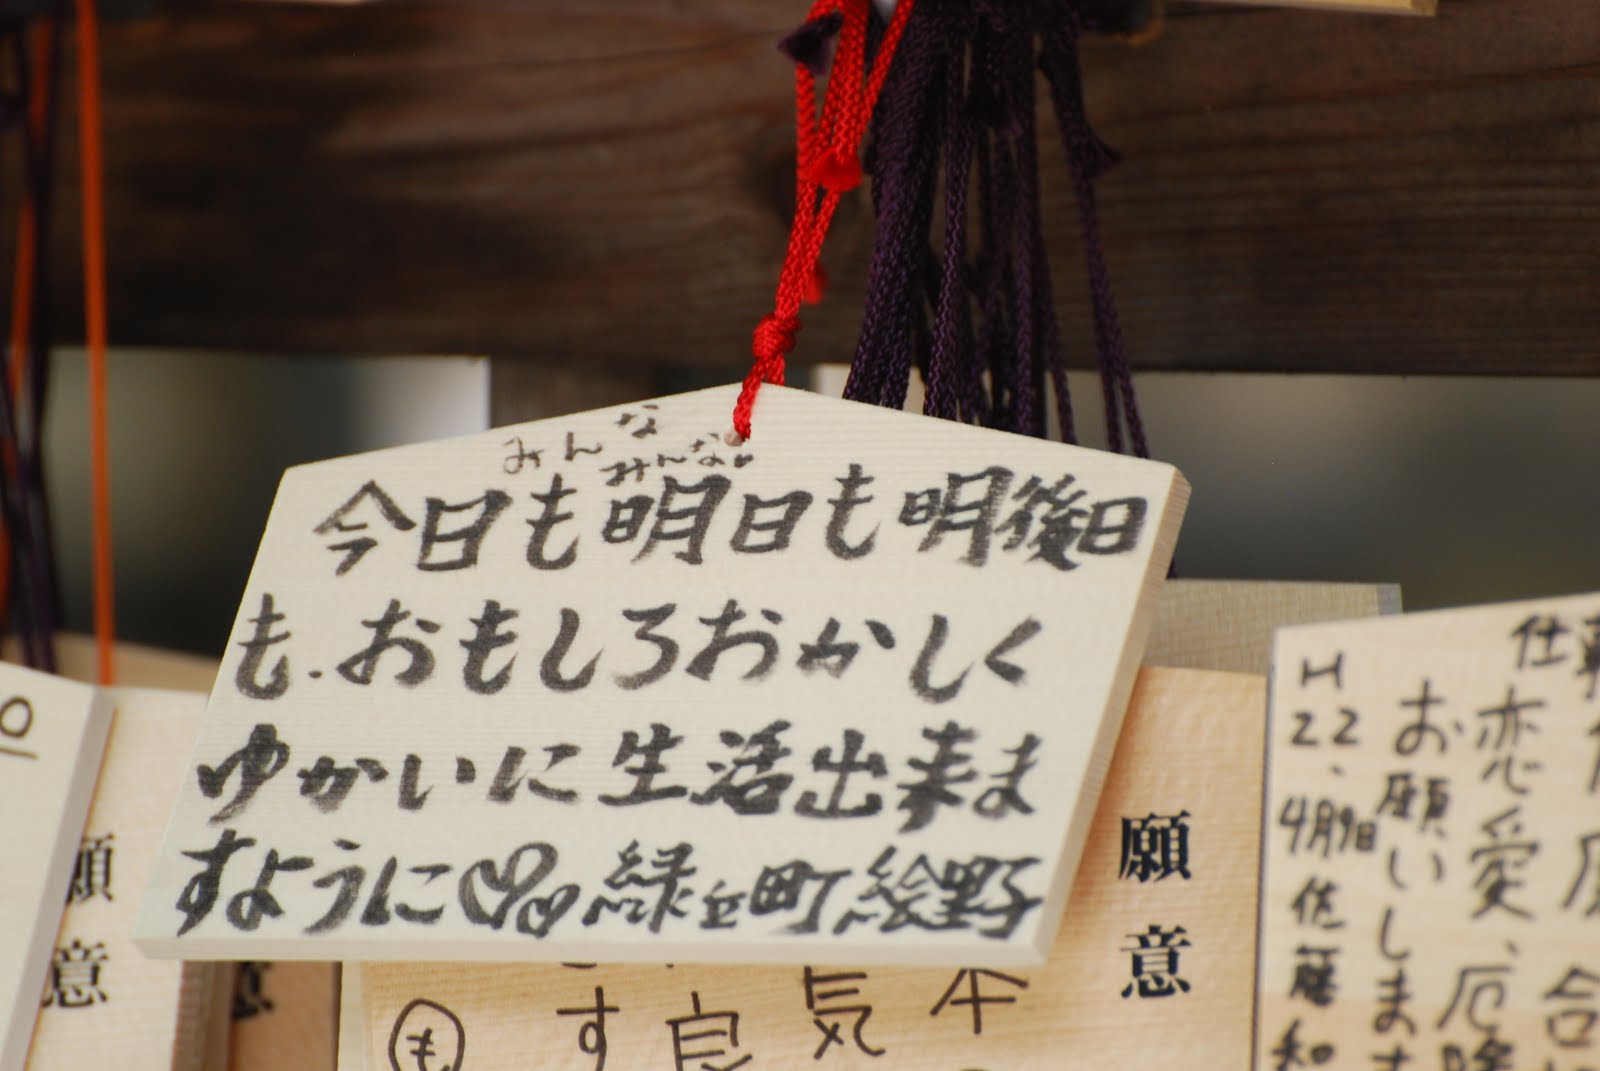 みんな
みんな
今日も明日も明後日
も.おもしろおかしく
ゆかいに生活出来ま
すように 緑ヶ丘町 絵野
願意
願意
意
す
良
気
も
仕
恋愛、厄
お願いしま
H22、4月9日 佐藤 和
合